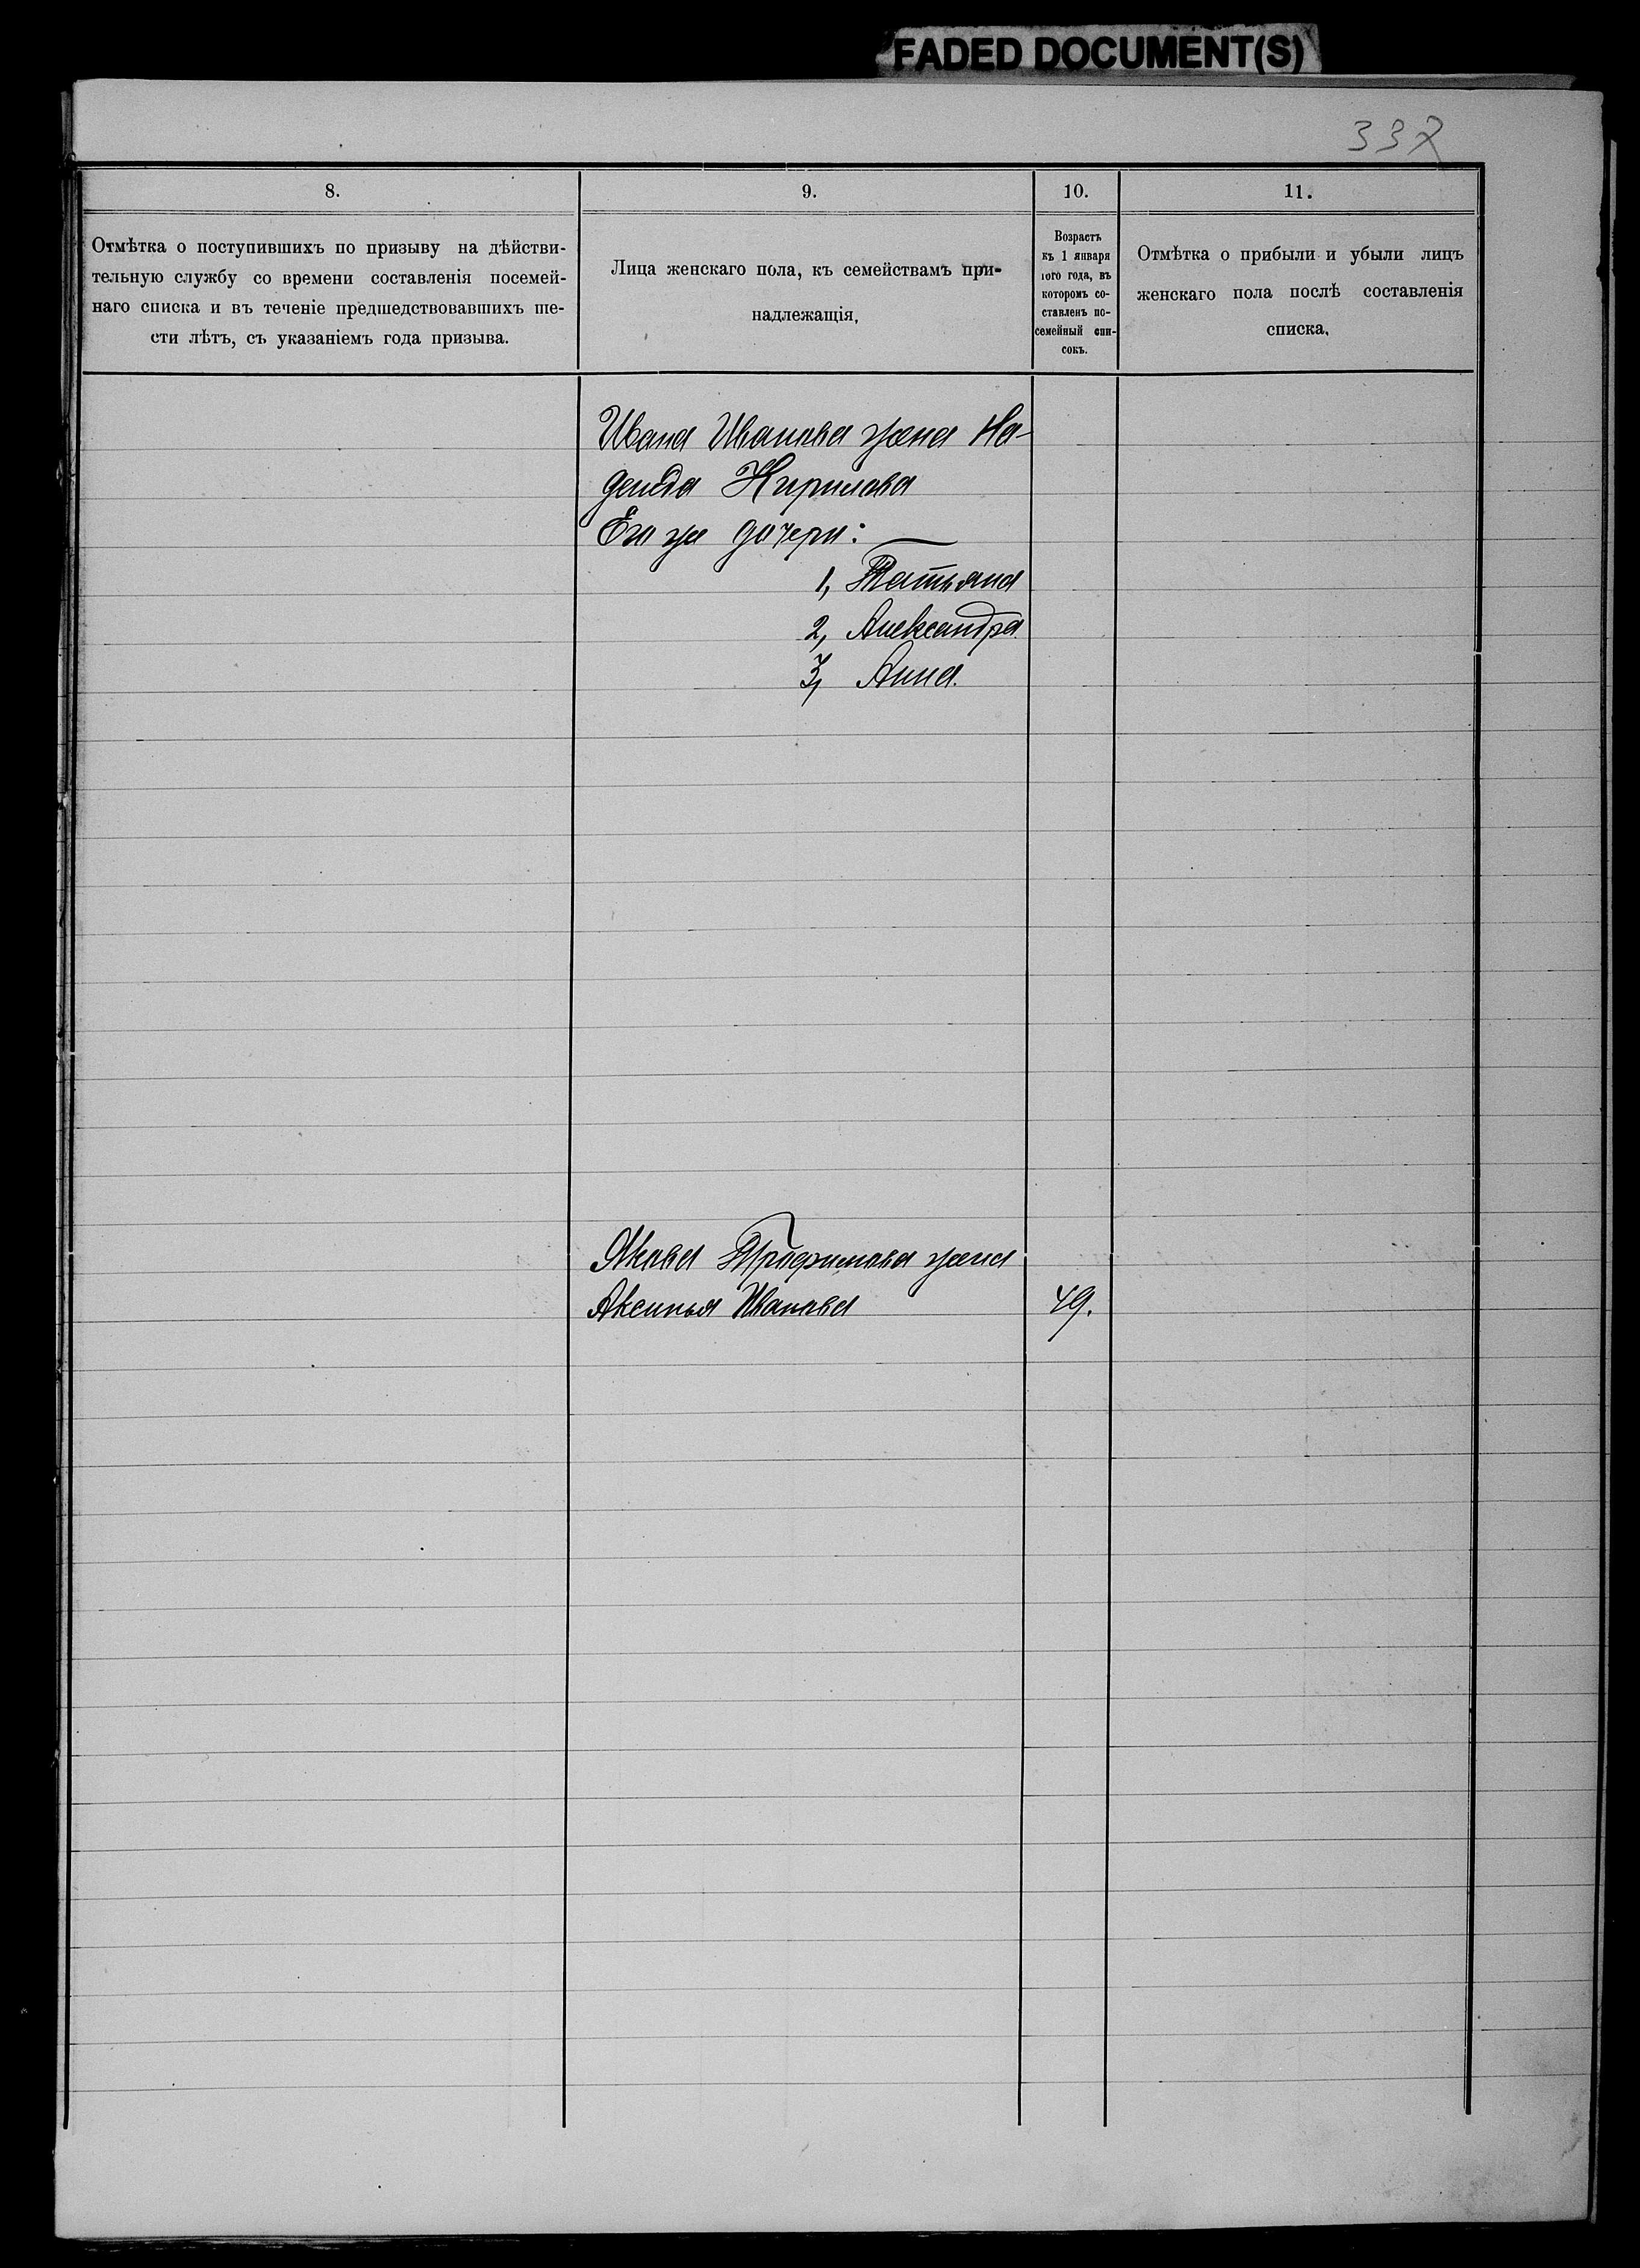 FADED DOCUMENT(S)
337
8.
9.
10.
11.
Отмѣтка о поступившихъ по призыву на дѣйстви-
тельную службу со времени составленія посемей-
наго списка и въ теченіе предшедствовавшихъ ше-
сти лѣтъ, съ указаніемъ года призыва.
Лица женскаго пола, къ семействамъ при-
надлежащія,
Возрастъ
къ 1 января
того года, въ
которомъ со-
ставленъ по-
семейный спи-
сокъ.
Отмѣтка о прибыли и убыли лицъ
женскаго пола послѣ составленія
списка,
Ивана Иванова жена На-
дежда Кирилова
Его же дочери:
1, Татьяна
2, Александра
3, Анна.
Якова Трофимова жена
Аксинья Иванова 49.